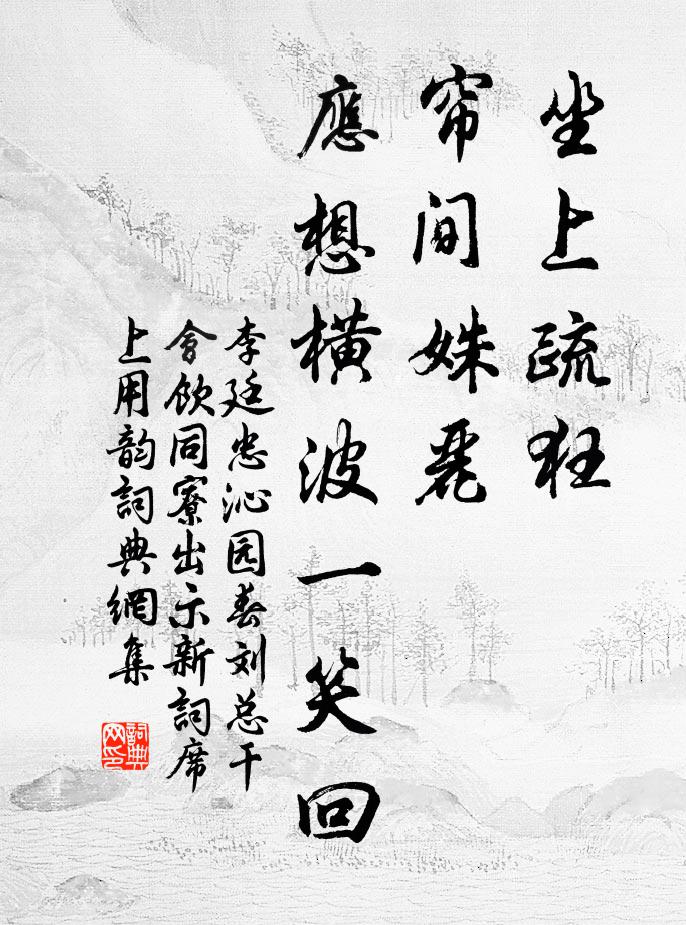 坐上疏狂
帘间姝丽
應想橫波一笑回
李廷忠沁园春刘总干
會飲同寮出示新詞席
上用韵詞典網集
詞典網印